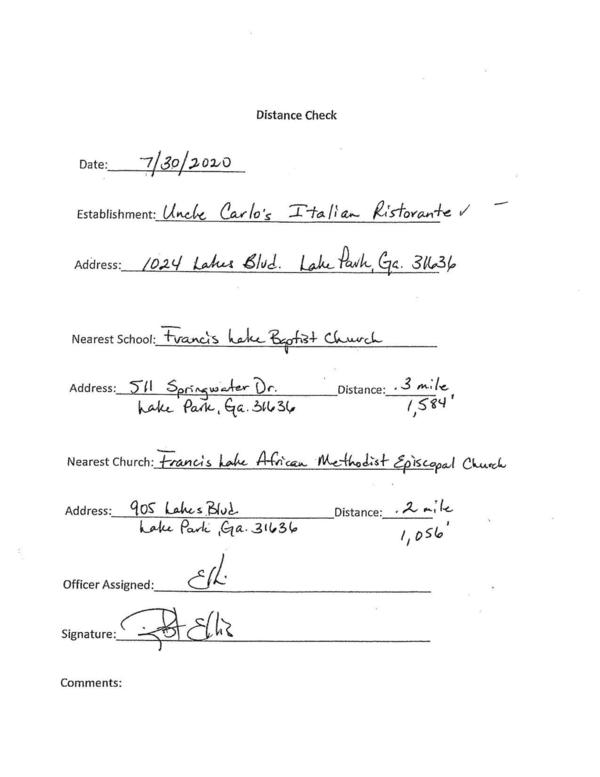 Distance Check
Date: 7/30/2020
Establishment: Uncle Carlo's Italian Ristorante ✓ –
Address: 1024 Lakes Blvd. Lake Park, Ga. 31636
Nearest School: Francis Lake Baptist Church
Address: 511 Springwater Dr. Distance: .3 mile
Lake Park, Ga. 31636 1,584'
Nearest Church: Francis Lake African Methodist Episcopal Church
Address: 905 Lakes Blvd. Distance: .2 mile
Lake Park, Ga. 31636 1,056'
Officer Assigned:
Signature: Ellis
Comments: